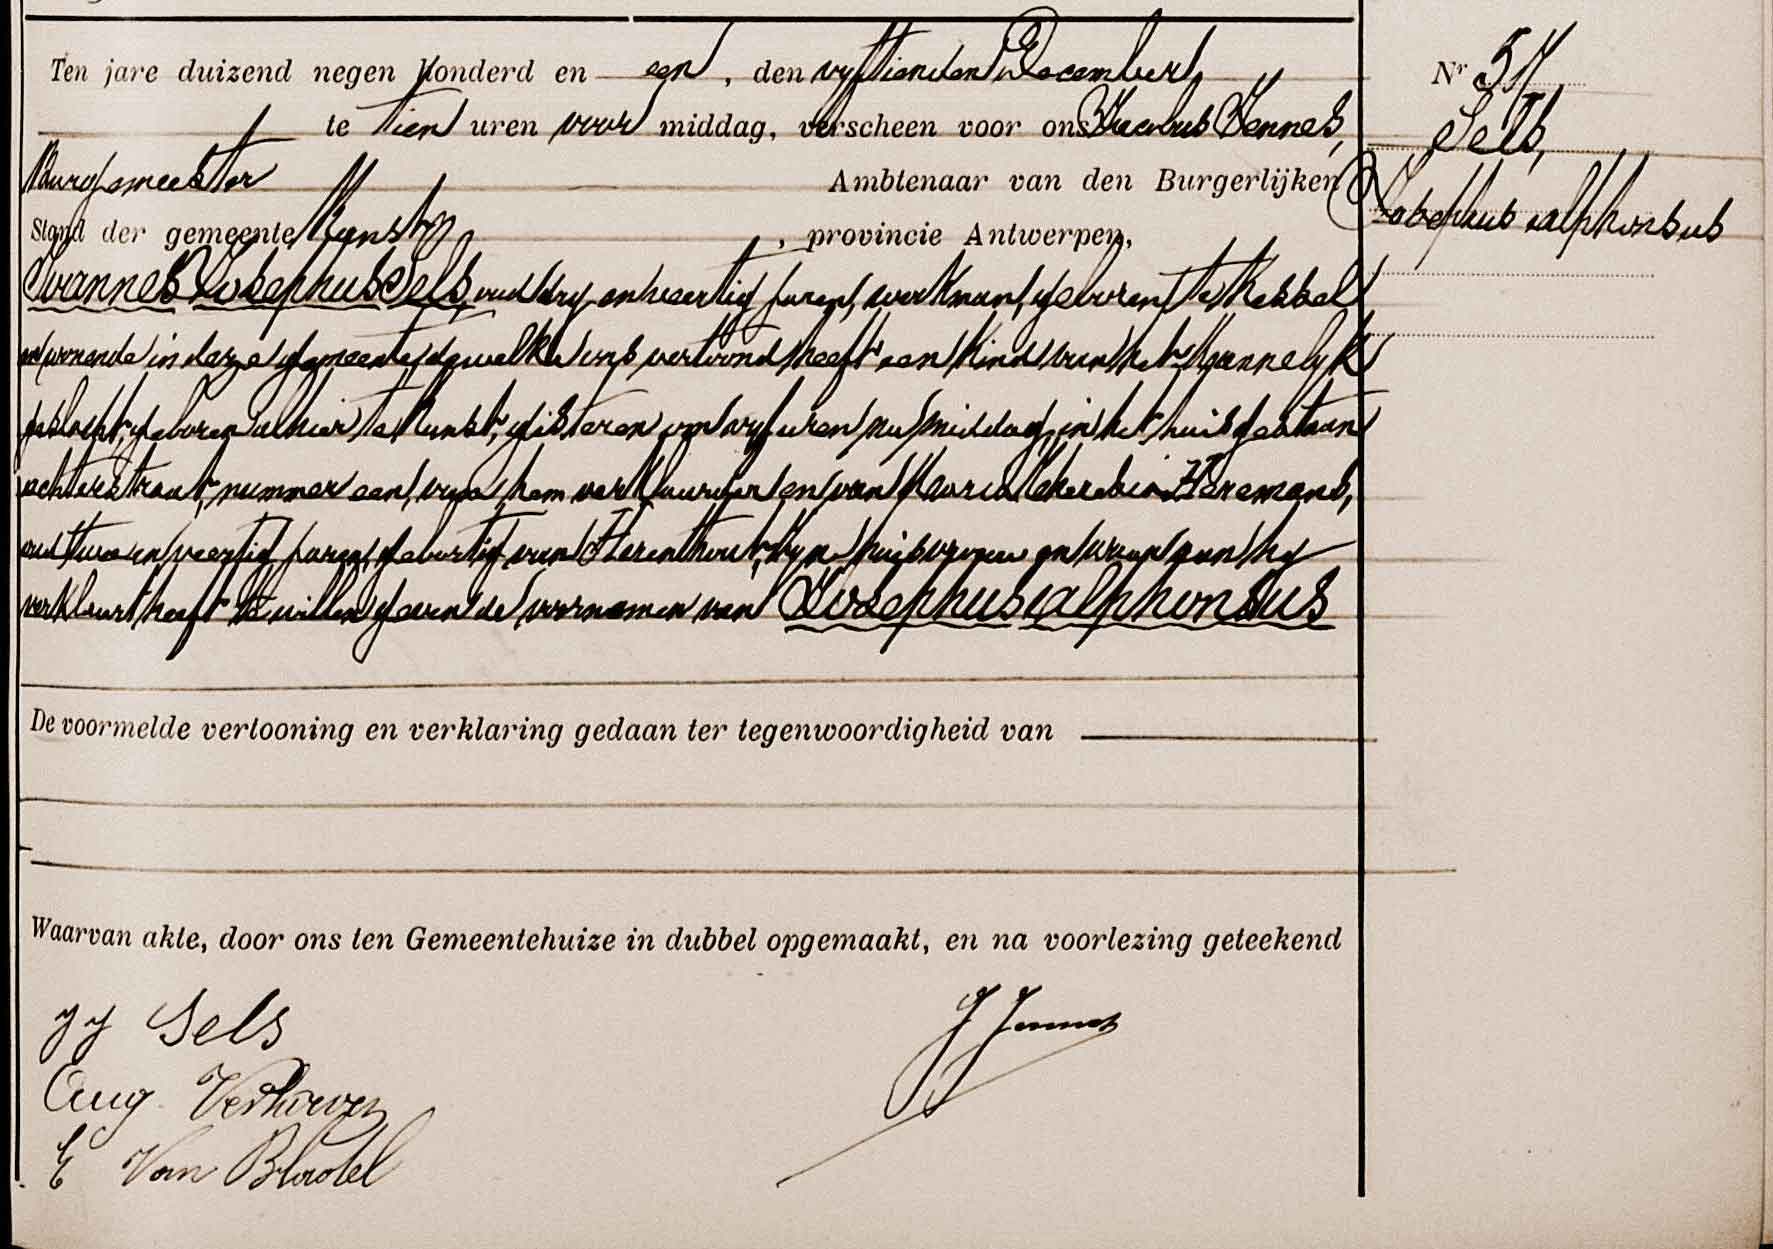 Ten jare duizend negen honderd en een, den vyftienden December
te tien uren voor middag, verscheen voor ons Jacobus Jennes,
Burgemeester Ambtenaar van den Burgerlijken
Stand der gemeente Ranst, provincie Antwerpen,
Joannes Josephus Sels, oud dry en veertig jaren, werkman, geboren te Kessel
en wonende in deze gemeente, dewelke ons vertoond heeft een kind van het mannelyk
geslacht, geboren alhier te Ranst, gisteren om vyf uren na middag, in het huis gestaan
achterstraat, nummer een, van hem verklaarder en van Maria Theresia Heremans,
oud twee en veertig jaren, geburtig van Herenthout, zyne huisvrouw en waaraan hy
verklaart heeft te willen geven de voornamen van Josephus Alphonsus
De voormelde vertooning en verklaring gedaan ter tegenwoordigheid van
Waarvan akte, door ons ten Gemeentehuize in dubbel opgemaakt, en na voorlezing geteekend
J J Sels
J Jennes
Aug. Verhoeven
E Van Bladel
Nr 57
Sels,
Josephus Alphonsus